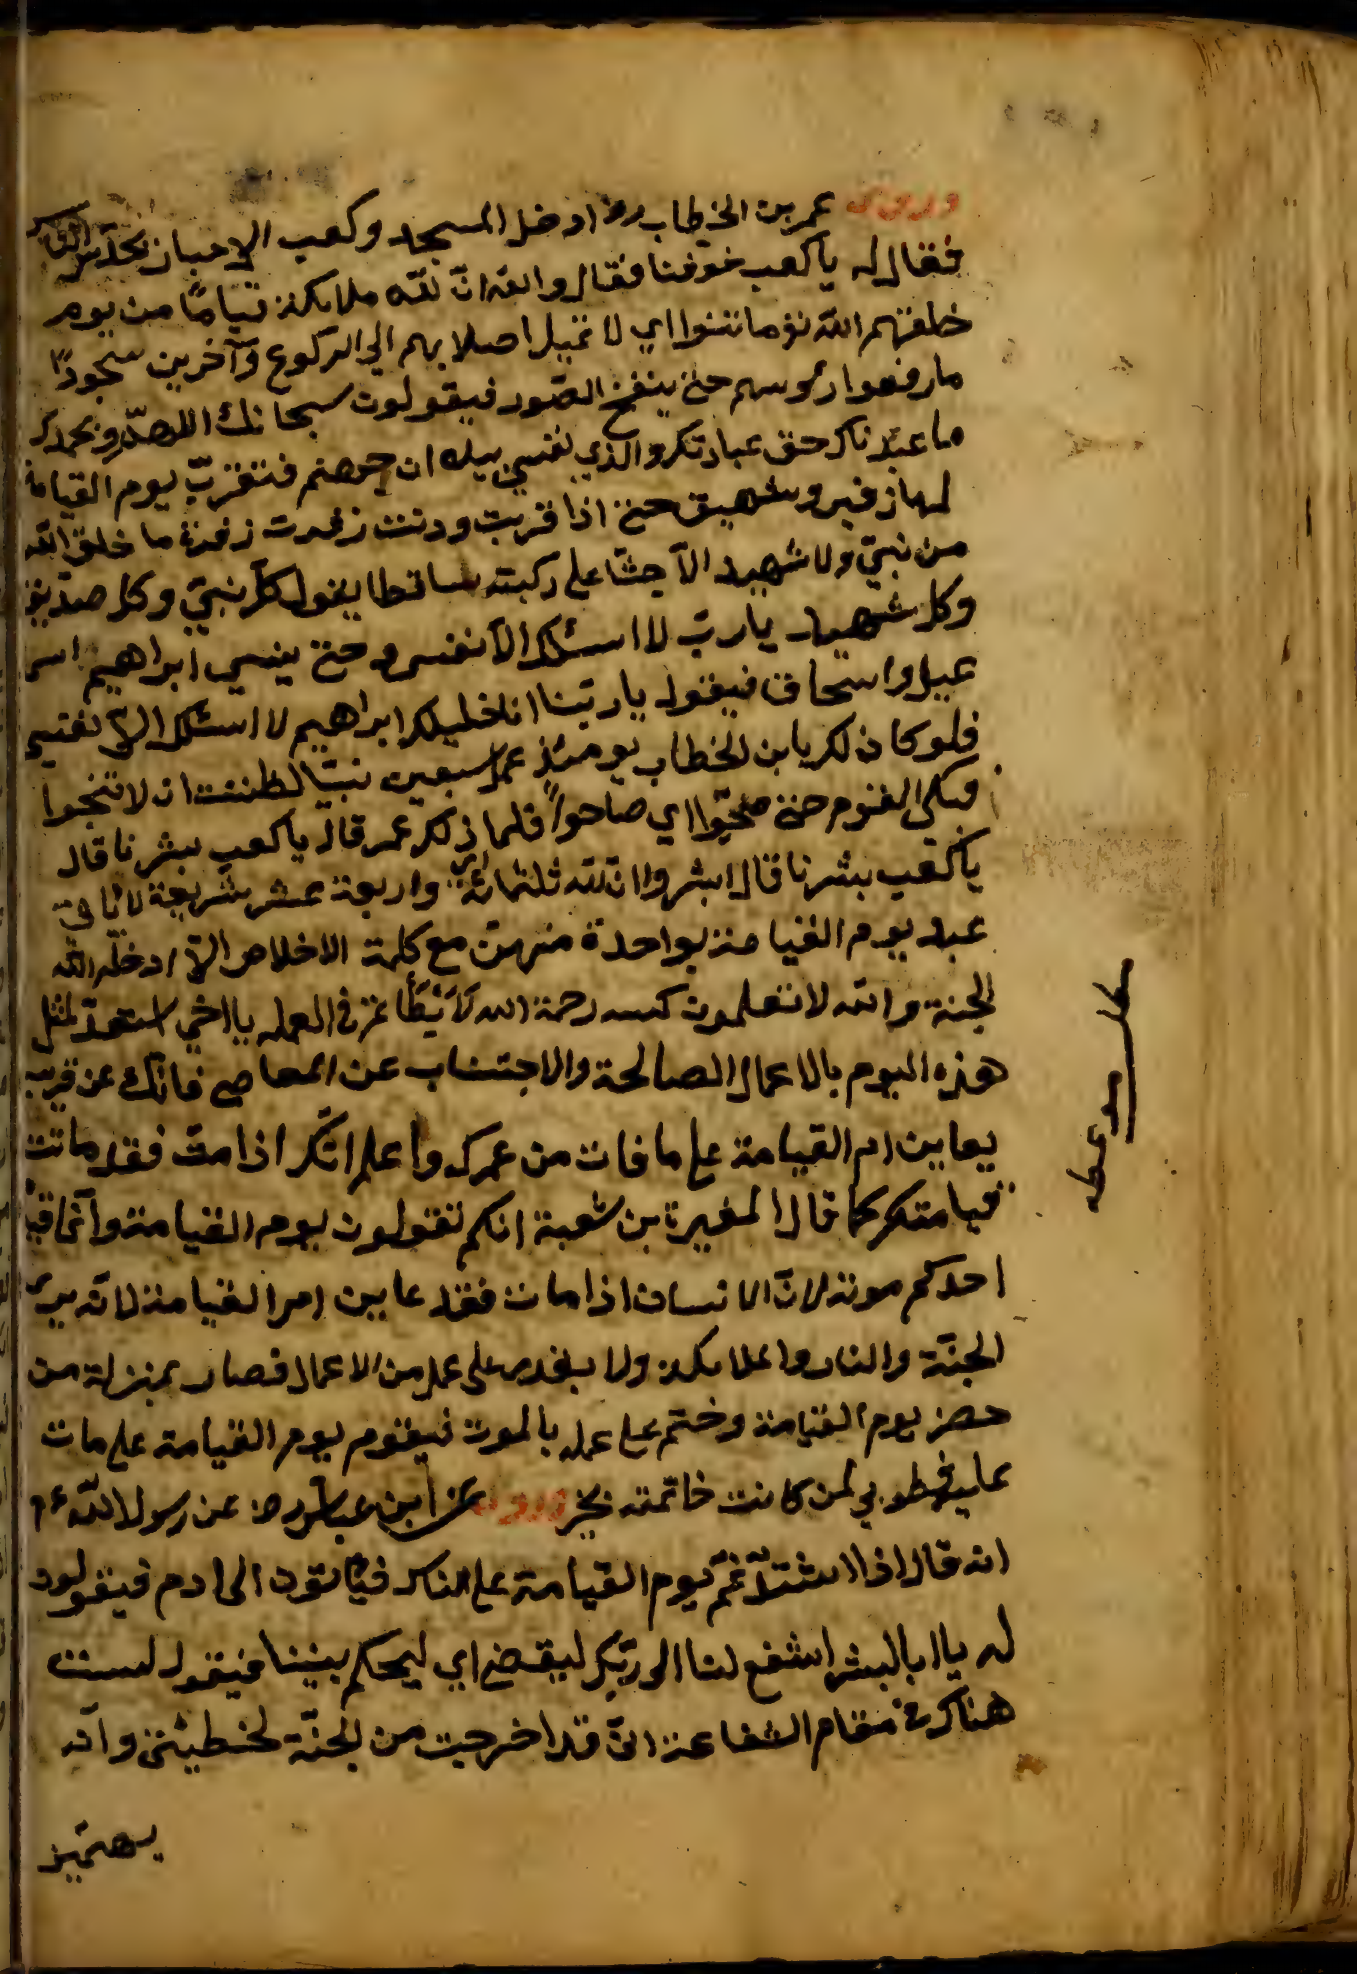 وروى عمر بن الخطاب رض ادخل المسجد وكعب الاحبار يحدّث الناس
فقال له يا كعب خوفنا فقال والله انّ لله ملائكة قيامًا من يوم
خلقتهم الله تع ما تثنوا اي لا تميل اصلابهم الي الركوع وآخرين سجودًا
ما رفعوا رءوسهم حتى ينفخ الصّور فيقولون سبحانك اللهمّ وبحمدك
ما عبدناك حق عبادتك والذي نفسي بيده ان جهنم فتقربّ يوم القيامة
لها زفير وشهيق حتى اذا قربت ودنت زفرت زفرة ما خلق الله
من نبيّ ولا شهيد الاّ جثا على ركبته ساقطا يقول كلّ نبيّ وكل صدّيق
وكل شهيد يا ربّ لا اسئلك الاّ نفسي حتى ينسي ابراهيم اسم
عيل واسحاق فيقول يا ربّنا انا خليلك ابراهيم لا اسئلك الاّ نفسي
فلو كان لك يا بن الخطاب يومئذ عمل سبعين نبيّا لظننت ان لا تنجوا
فبكى القوم حتى ضجّوا اي صاحوا فلما ذلك عمر قال يا كعب بشرنا قال
يا كعب بشرنا قال ابشروا انّ لله ثلثمائة واربعة عشر شريعة لا يأتي
عبد يوم القيامة بواحدة منهنّ مع كلمة الاخلاص الاّ ادخله الله
الجنة والله لا تعلمون كنه رحمة الله في العمل يا اخي استعدّ لمثل
هذه اليوم بالاعمال الصالحة والاجتناب عن المعاصي فانّك عن قريب
يعاين ام القيامة على ما فات من عمرك واعلم انّك اذا متّ فقد ماتت
قيامتك كما قال المغيرة بن شعبة انكم تقولون يوم القيامة وانّما قيا
احدكم موته لانّ الانسان اذا مات فقد عاين امر القيامة لانّه يرى
الجنّة والنار والملائكة ولا يقدر على عمل من الاعمال فصار بمنزلة من
حضر يوم القيامة وختم على عمله بالموت فيقوم يوم القيامة على مات
عليه فطوبي لمن كانت خاتمته بخير وروى عن ابن عباس رض عن رسول الله ع م
انه قال اذا اشتدّ غمّ يوم القيامة على الناس فيأتون الى ادم فيقولون
له يا ابا البشر اشفع لنا الى ربّك ليقضي اي ليحكم بيننا فيقول لست
هناك في مقام الشفاعة انّي قد اخرجت من الجنّة لخطيئتي وانّه
يهمّني